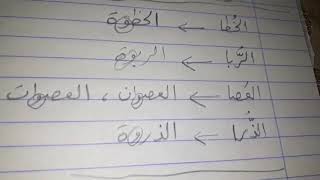 الخُطا ← الخطوة
الرُّبا ← الربوة
العَصا ← العصوان ، العصوات
الذُّرا ← الذروة